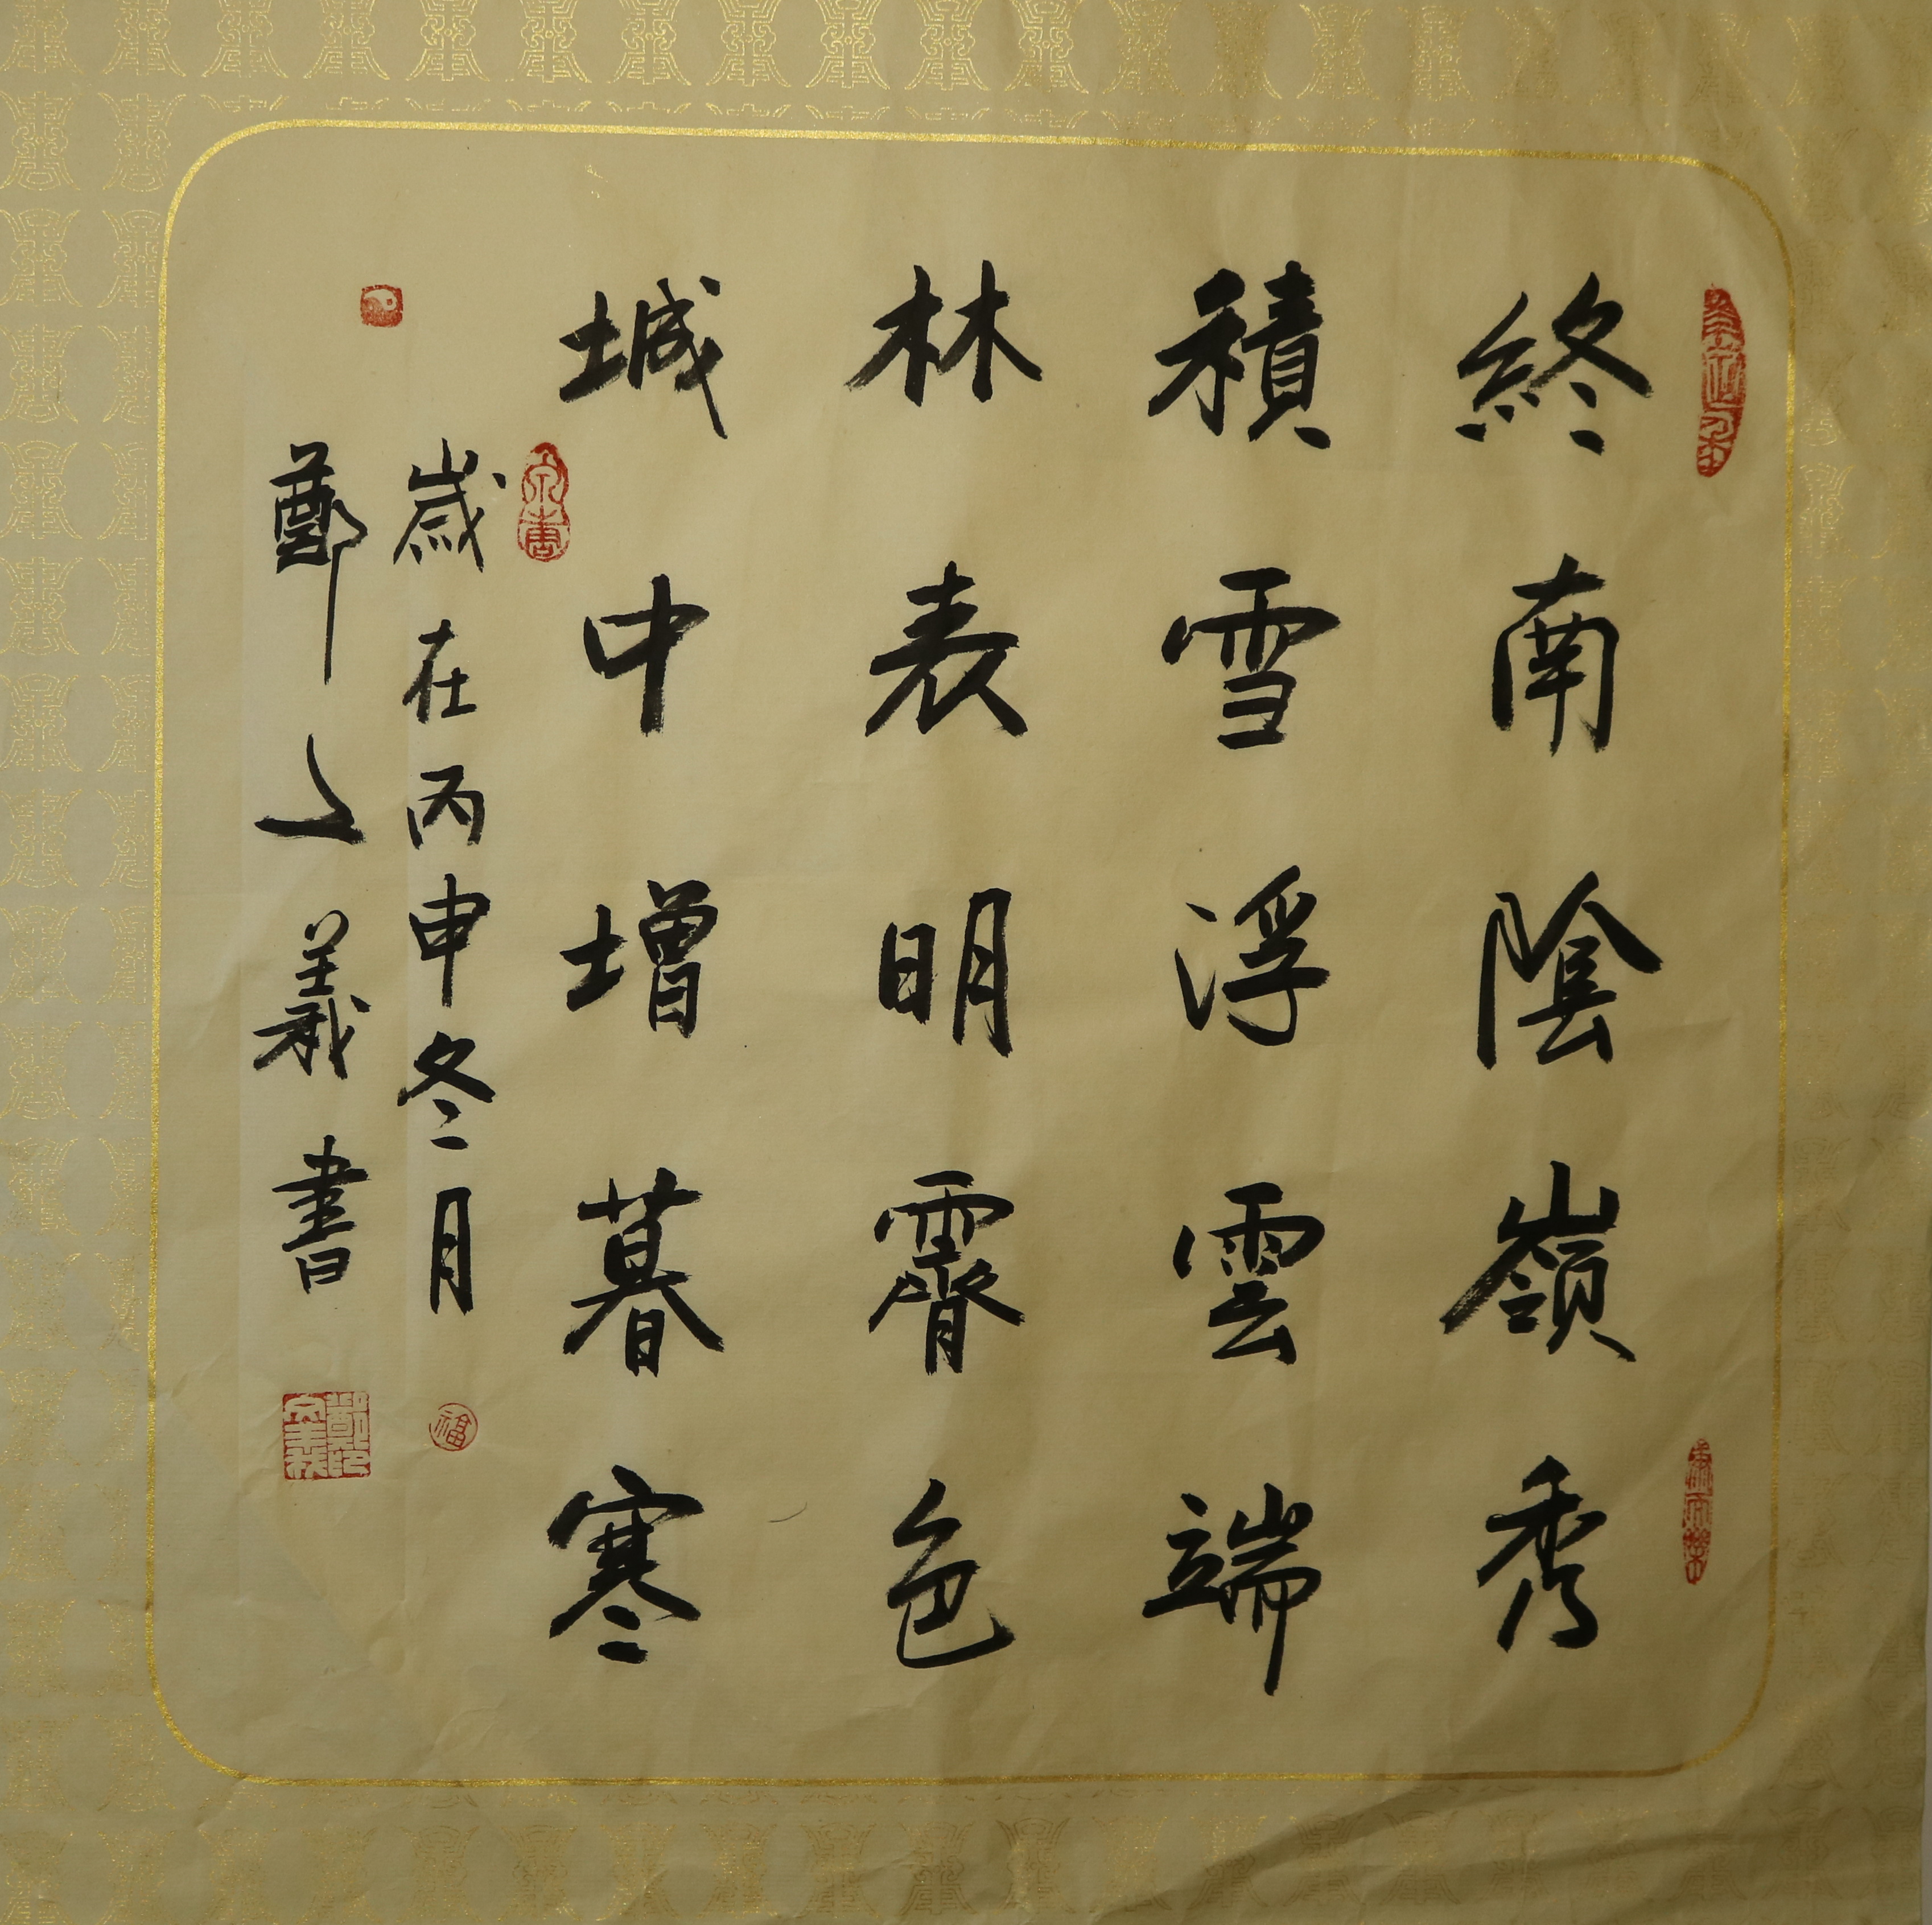 終南陰嶺秀
積雪浮雲端
林表明霽色
城中增暮寒
歲在丙申冬月
鄭之義書
福